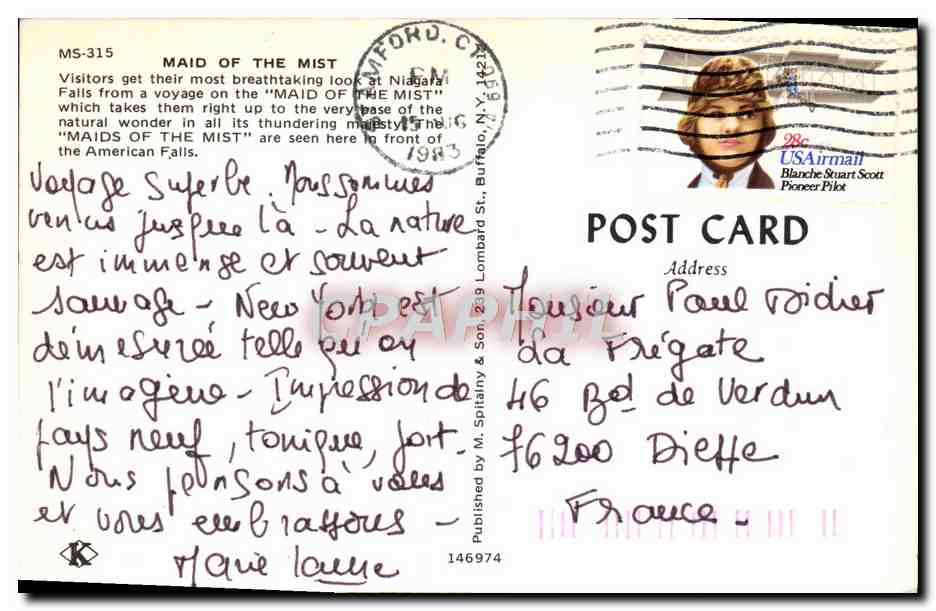 MS-315
MAID OF THE MIST
Visitors get their most breathtaking look at Niagara
Falls from a voyage on the "MAID OF THE MIST"
which takes them right up to the very base of the
natural wonder in all its thundering majesty. The
"MAIDS OF THE MIST" are seen here in front of
the American Falls.
Voyage superbe. Nous sommes
venus jusque là - La nature
est immense et souvent
sauvage - New York est
démesurée telle qu'on
l'imagine - Impression de
pays neuf, tonique, fort.
Nous pensons à vous
et vous embrassons -
Marie
K
146974
Published by M. Spitalny & Son, 239 Lombard St., Buffalo, N.Y. 1421
MFORD, CT 069
PM
15
1983
28c
USAirmail
Blanche Stuart Scott
Pioneer Pilot
POST CARD
Address
Monsieur Paul Didier
La Frégate
46 Bd de Verdun
76200 Dieppe
France -
CPAPHIL